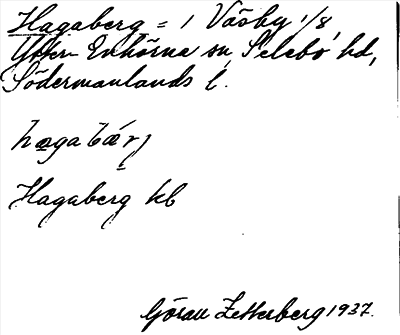 Hagaberg = 1 Väsby 1/8,
Ytter-Enhörna sn, Selebo hd,
Södermanlands l.
hagabärj
Hagaberg kb
Göran Zetterberg 1937.